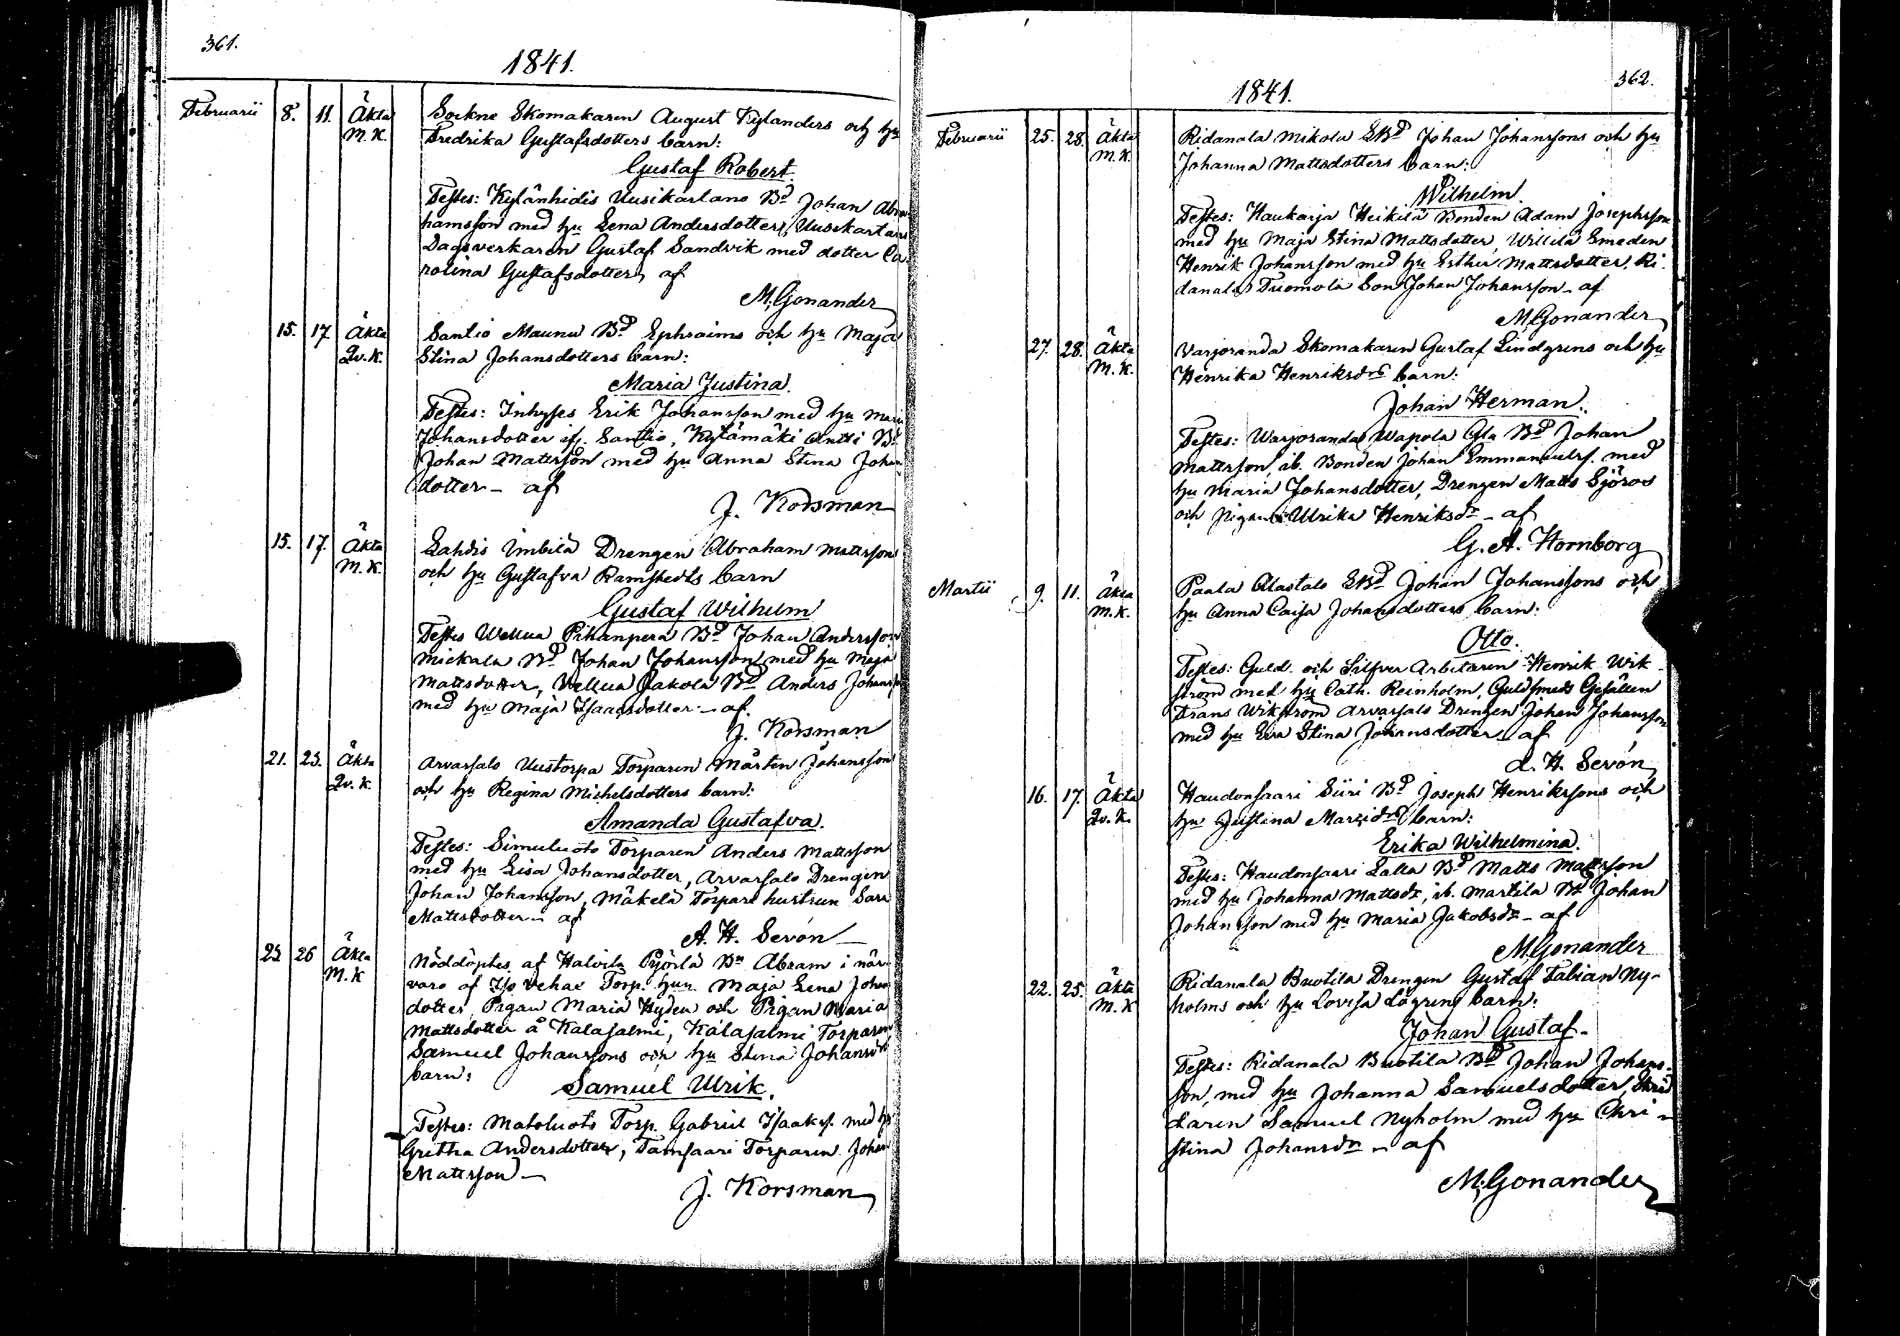 361.
1841.
Februarii 8. 11. Äkta Sockne Skomakaren August Kylanders och hu
M. K. Fredrika Gustafsdotters barn:
Gustaf Robert.
Testes: Kylänhidis Uusikartano Bd Johan Abra-
hamsson med hu Lena Andersdotter, Uusikartano
Dagsverkaren Gustaf Sandvik med dotter Ca-
rolina Gustafsdotter, af
M. Gonander
15. 17. Äkta Santio Maunu Bd Ephraims och hu Maja
Qv. K. Stina Johansdotters barn:
Maria Justina.
Testes: Inhyses Erik Johansson med hu Maria
Johansdotter ifr. Santio, Kylämäki Antti Bd
Johan Mattsson med hu Anna Stina Johans
dotter – af
J. Korsman
15. 17. Äkta Lahdis Imbilä Drengen Abraham Mattsson
M. K. och hu Gustafva Ramstedts barn
Gustaf Wilhelm
Testes Wellua Pihanpera Bd Johan Andersson
Mickala Bd Johan Johansson med hu Maja
Mattsdotter, Wellua Jakola Bd Anders Johansson
med hu Maja Isaacsdotter – af.
J. Korsman
21. 23. Äkta Arvassalo Uustorpa Torparen Mårten Johansson
Qv. K. och hu Regina Michelsdotters barn:
Amanda Gustafva.
Testes: Simuluoto Torparen Anders Mattsson
med hu Lisa Johansdotter, Arvassalo Drengen
Johan Johansson, Mäkelä Torpare hustrun Sara
Mattsdotter – af
A. H. Sevón
25 26 Äkta Nöddöptes af Halvila Pjörlä Bn Abram i när-
M. K varo af Iso Vehae Torp. hun Maja Lena Johans
dotter, Pigan Maria Hyden och Pigan Maria
Mattsdotter å Kalasalmi, Kalasalmi Torparen
Samuel Johanssons och hu Stina Johansdrs
barn:
Samuel Ulrik.
Testes: Matoluoto Torp. Gabriel Isaaks. med hu
Gretha Andersdotter, Tamsaari Torparen Johan
Mattsson –
J. Korsman
362.
1841.
Februarii 25. 28. Äkta Ridanala Mikola LBd Johan Johanssons och hu
M. K. Johanna Mattsdotters barn:
Wilhelm.
Testes: Haukaija Heikilä Bonden Adam Josephsson
med hu Maja Stina Mattsdotter, Willilä Smeden
Henrik Johansson med hu Esther Mattsdotter, Ri-
danala Tuomola Son Johan Johansson – af
M. Gonander
27. 28. Äkta Varjoranda Skomakaren Gustaf Lindgrens och hu
M. K. Henrika Henriksdrs barn:
Johan Herman.
Testes: Warjoranda Wapola Ala Bd Johan
Mattsson, ib. Bonden Johan Emmanuels. med
hu Maria Johansdotter, Drengen Matts Sjöros
och pigan Ulrika Henriksdr – af
G. A. Hornborg
Martii 9. 11. Äkta Paala Alastalo LBd Johan Johanssons och
M. K. hu Anna Caisa Johansdotters barn:
Otto.
Testes: Guld och Silfver Arbetaren Henrik Wik-
ström med hu Cath. Reinholm, Guldsmeds Gesällen
Frans Wikström Arvassalo Drengen Johan Johansson
med hu Eva Stina Johansdotter – af
A. H. Sevón
16. 17. Äkta Haudonsaari Siiri Bd Josephs Henrikssons och
Qv. K. hu Justina Marcidrs barn:
Erika Wilhelmina.
Testes: Haudonsaari Lalla Bd Matts Mattsson
med hu Johanna Mattsdr, ib. Martila Bd Johan
Johansson med hu Maria Jakobsdr – af
M. Gonander
22. 25. Äkta Ridanala Buotila Drengen Gustaf Fabian Ny-
M. K holms och hu Lovisa Lögrens barn:
Johan Gustaf.
Testes: Ridanala Buotila Bd Johan Johans-
son, med hu Johanna Samuelsdotter, Skräd
daren Samuel Nyholm med hu Chri-
stina Johansdr – af
M. Gonander